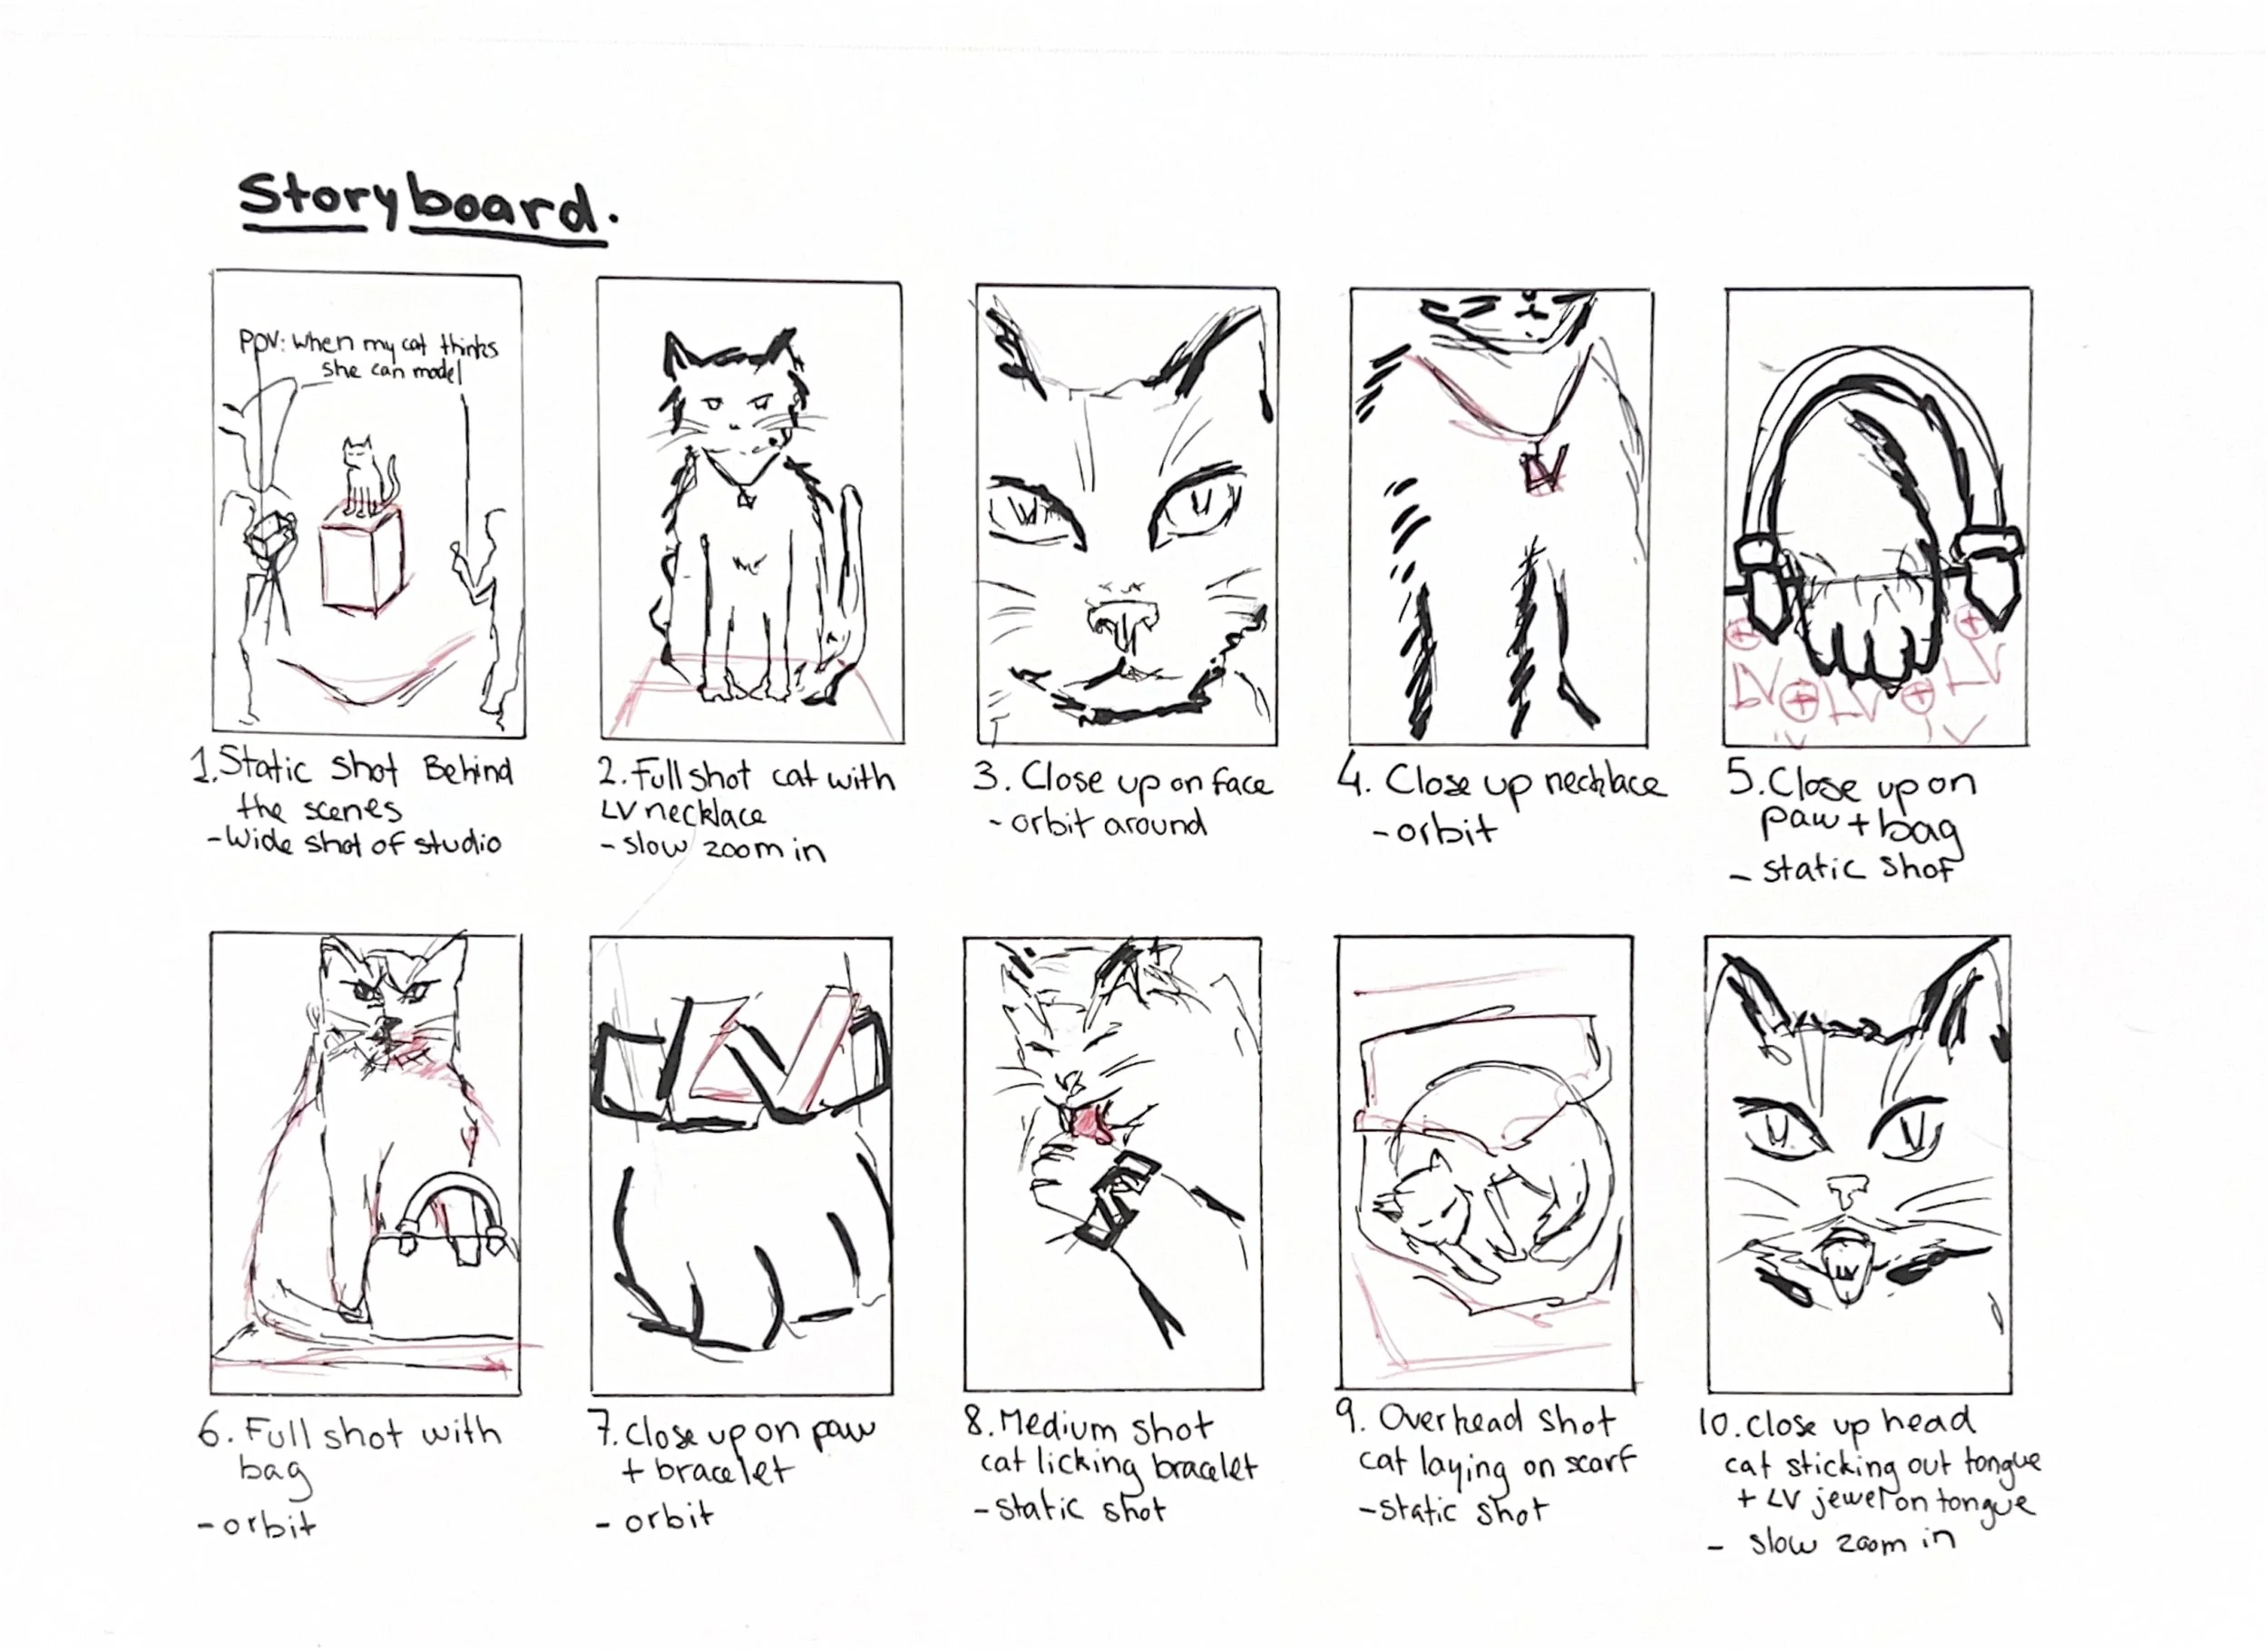 Storyboard.
POV: when my cat thinks
she can model
1. Static shot Behind
the scenes
- Wide shot of studio
2. Full shot cat with
LV necklace
- slow zoom in
3. Close up on face
- orbit around
LV
4. Close up necklace
- orbit
LV LV LV
5. Close up on
paw + bag
- static shot
6. Full shot with
bag
- orbit
LV
7. close up on paw
+ bracelet
- orbit
LV
8. Medium shot
cat licking bracelet
- static shot
9. Overhead shot
cat laying on scarf
- static shot
LV
10. close up head
cat sticking out tongue
+ LV jewel on tongue
- slow zoom in